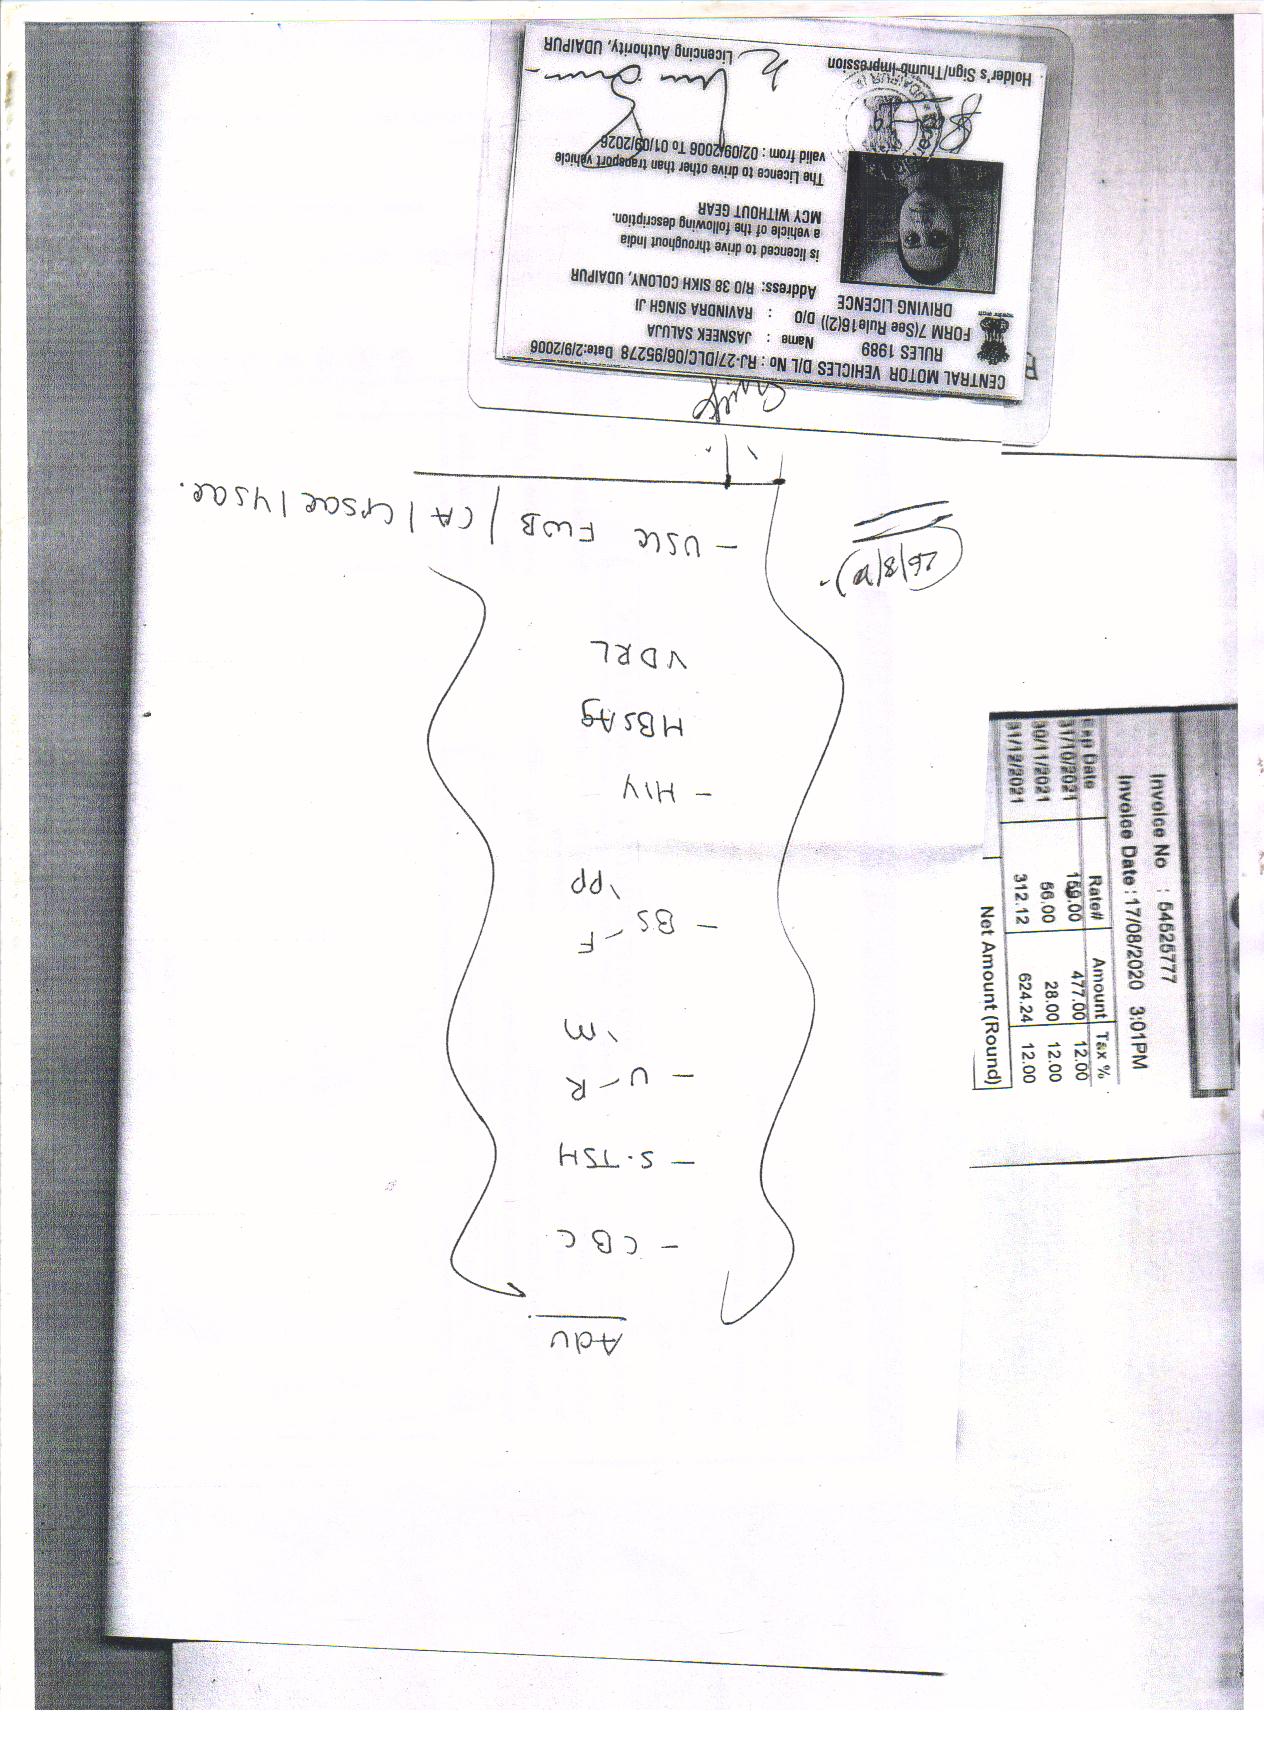 Adv
- CBC
- S.TSH
- U - R
\ M
- BS - F
\ PP
- HIV
HBSAg
VDRL
- USG FWB / CA /
CENTRAL MOTOR VEHICLES RULES 1989
FORM 7(See Rule16(2))
DRIVING LICENCE
D/L No : RJ-27/DLC/06/95278 Date:2/9/2006
Name : JASNEEK SALUJA
D/O : RAVINDRA SINGH JI
Address: R/O 38 SIKH COLONY, UDAIPUR
is licenced to drive throughout India
a vehicle of the following description.
MCY WITHOUT GEAR
The Licence to drive other than transport vehicle
valid from : 02/09/2006 To 01/09/2026
Holder's Sign/Thumb-Impression
Licencing Authority, UDAIPUR
Invoice No : 54525777
Invoice Date : 17/08/2020 3:01PM
Exp Date Rate# Amount Tax %
31/10/2021 159.00 477.00 12.00
30/11/2021 56.00 28.00 12.00
31/12/2021 312.12 624.24 12.00
Net Amount (Round)